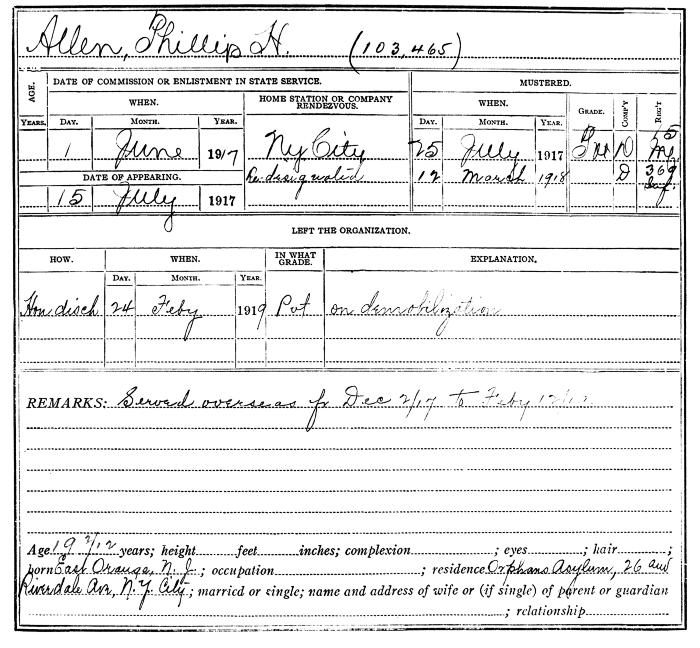 Allen, Phillip H. (103,465)
AGE. DATE OF COMMISSION OR ENLISTMENT IN STATE SERVICE. MUSTERED.
WHEN. HOME STATION OR COMPANY RENDEZVOUS. WHEN. GRADE. COMP'Y REG'T
YEARS. DAY. MONTH. YEAR. DAY. MONTH. YEAR.
1 June 1917 Ny City 25 July 1917 D 15
DATE OF APPEARING. Re-designated 12 March 1918 D 369 Inf.
15 July 1917
LEFT THE ORGANIZATION.
HOW. WHEN. IN WHAT GRADE. EXPLANATION.
DAY. MONTH. YEAR.
Hon disch 24 Feby 1919 Pvt on demobilization
REMARKS: Served overseas fr Dec 2/17 to Feby 12/
Age 19 2/12 years; height feet inches; complexion ; eyes ; hair ;
born East Orange, N. J. ; occupation ; residence Orphans Asylum, 26 and
Riverdale Ave, N.Y. City ; married or single; name and address of wife or (if single) of parent or guardian
; relationship